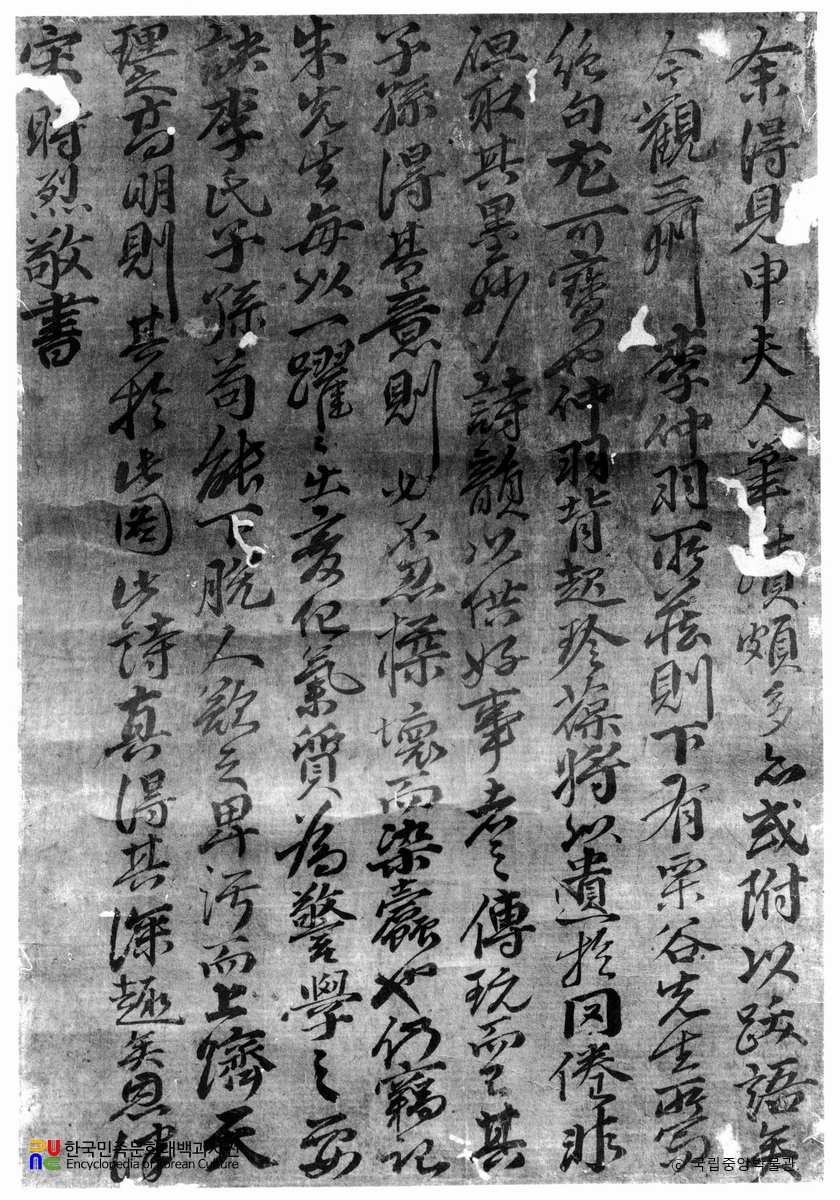 余得見申夫人筆蹟頗多而或附以跋語矣
今觀三州李仲羽所莊則下有栗谷先生所寫
絶句尤可寶也仲羽背起珍葆將以遺於同倦非
但取其墨妙詩韻以供好事者之傳玩而已其
子孫得其意則必不忍慘壞而染蠹也仍竊記
朱先生每以一躍躍出變化氣質爲警學之要
訣李氏子孫苟能下脫人欲之卑汚而上躋天
理之高明則其於此圖此詩真得其深趣矣恩津
宋時烈敬書
한국민족문화대백과사전
Encyclopedia of Korean Culture
© 국립중앙박물관